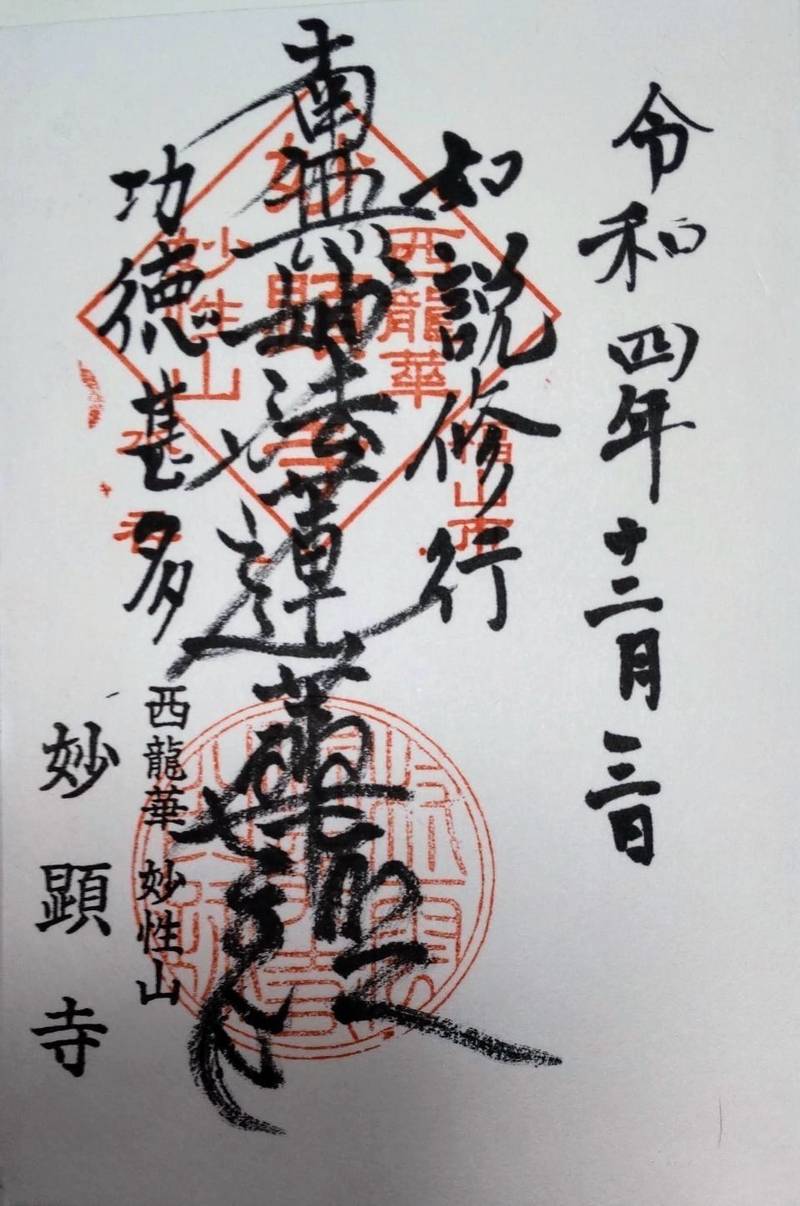 令和四年十二月三日
如説修行
南無妙法蓮華経
功徳甚多
西龍華 妙性山
妙顕寺
西龍華
妙顕寺
妙性山
福山市